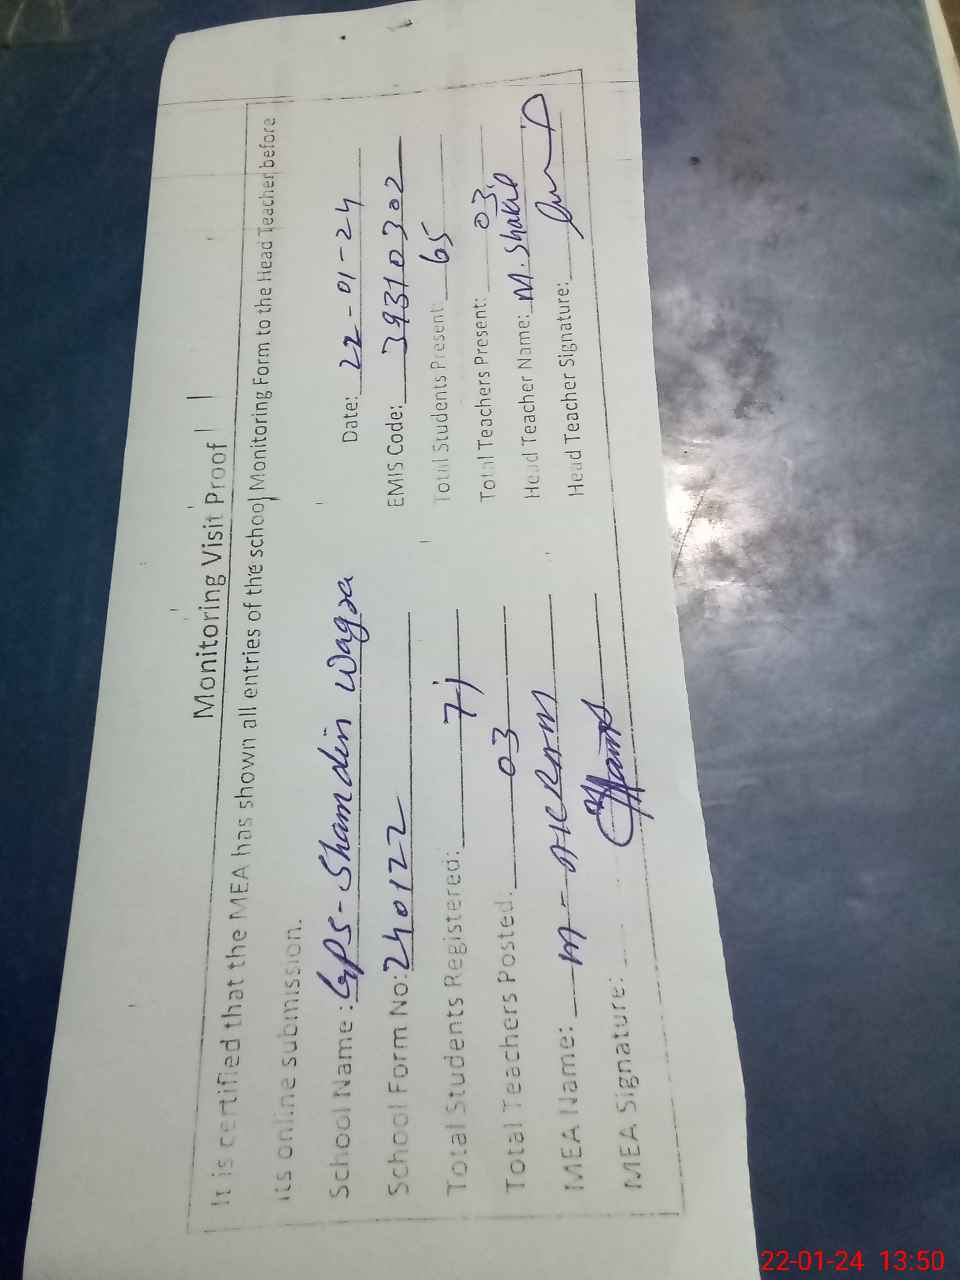 Monitoring Visit Proof
It is certified that the MEA has shown all entries of the school Monitoring Form to the Head Teacher before
its online submission.
School Name : GPS-Shamdin Wagra Date: 22-01-24
School Form No: 240122 EMIS Code: 39310302
Total Students Registered: 71 Total Students Present: 65
Total Teachers Posted: 03 Total Teachers Present: 03
MEA Name: M-AKRAM Head Teacher Name: M.Shakil
MEA Signature: Head Teacher Signature:
22-01-24 13:50